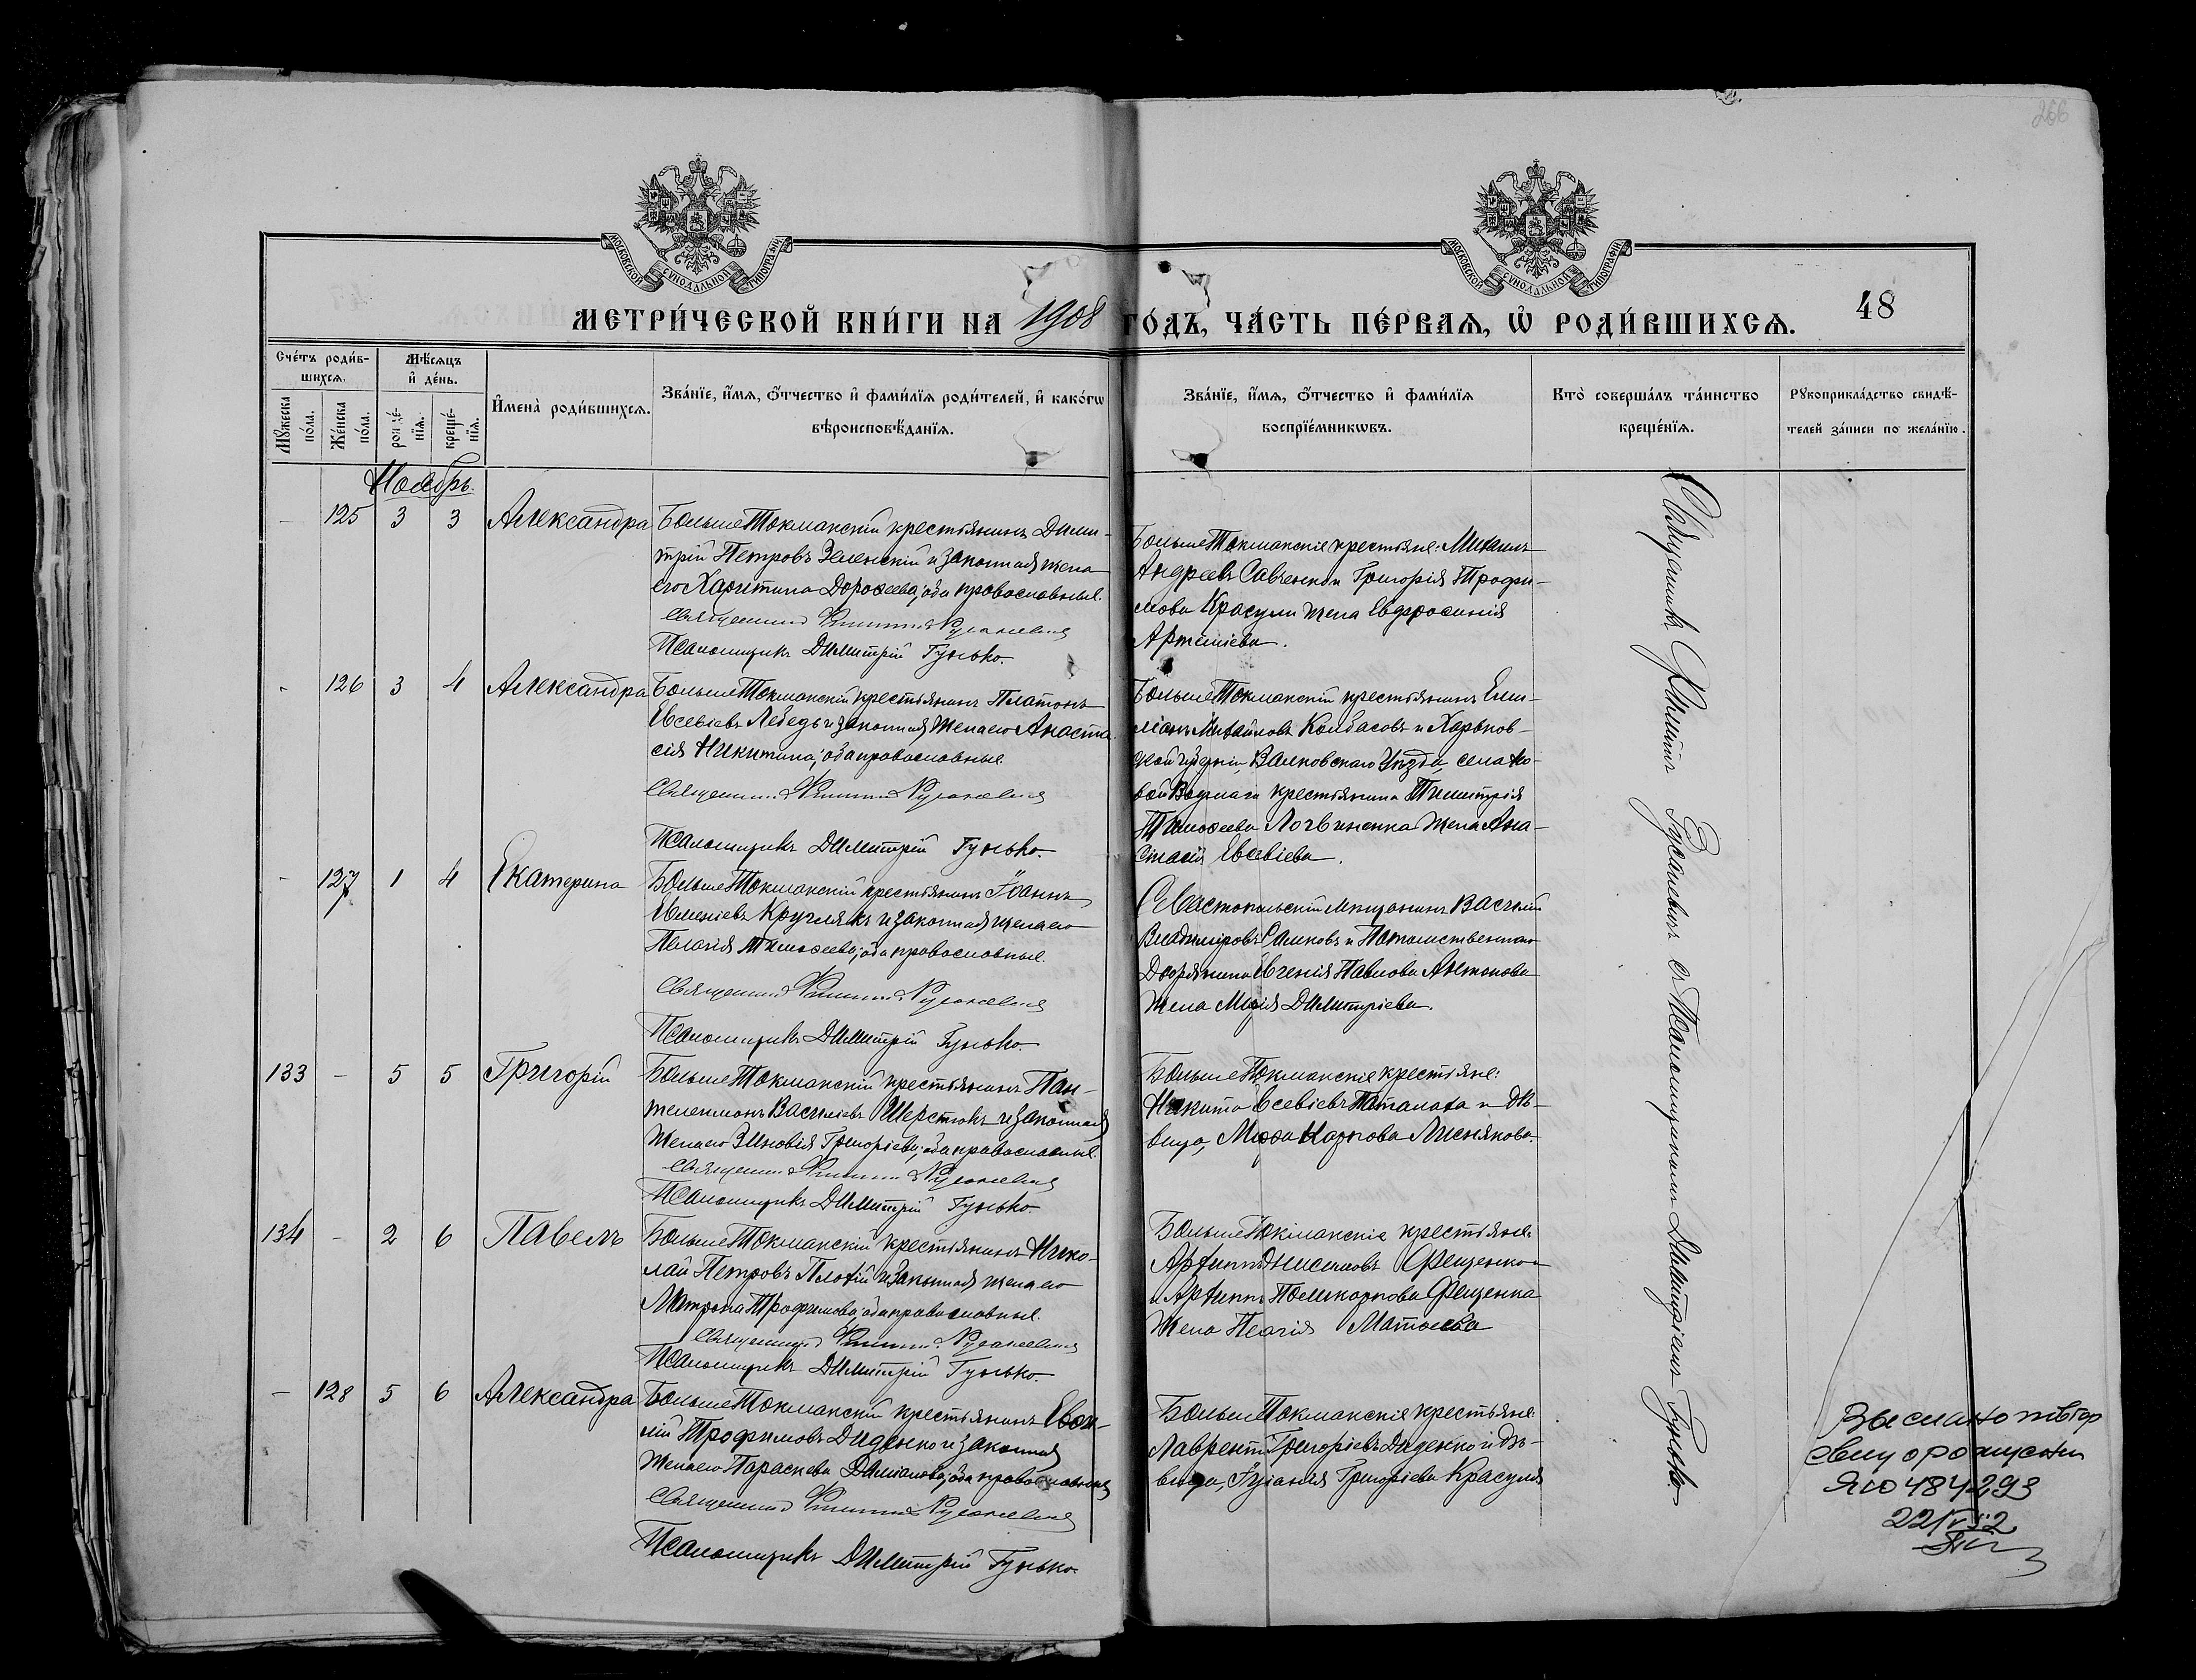 266
МОСКОВСКОЙ СѴНОДАЛЬНОЙ ТИПОГРАФІИ
МОСКОВСКОЙ СѴНОДАЛЬНОЙ ТИПОГРАФІИ
МЕТРИ́ЧЕСКОЙ КНИ́ГИ НА 1908 ГО́ДЪ, ЧА́СТЬ ПЕ́РВАѦ, Ѽ РОДИ́ВШИХСѦ. 48
Сче́тъ роди́в-
шихсѧ.
Мꙋ́жеска по́ла.
Же́нска по́ла.
Мѣ́сѧцъ
и҆ де́нь.
рожде́-
нїѧ.
креще́-
нїѧ.
И҆мена̀ роди́вшихсѧ.
Зва́нїе, и҆́мѧ, ѻ҆́тчество и҆ фами́лїѧ роди́телей, и҆ како́гѡ
вѣроисповѣ́данїѧ.
Зва́нїе, и҆́мѧ, ѻ҆́тчество и҆ фами́лїѧ
воспрїе́мникѡвъ.
Кто̀ соверша́лъ та́инство
креще́нїѧ.
Рꙋкоприкла́дство свидѣ́-
телей за́писи по жела́нїю.
Ноябрь.
- 125 3 3 Александра
Больше Токмакскій крестьянинъ Дими-
трій Петровъ Зеленскій и законная жена
его Харитина Дороѳеева; оба православные.
Священникъ
Псаломщикъ Димитрій Гунько.
Больше Токмакскіе крестьяне: Михаилъ
Андреевъ Савченко и Григорія Трофи-
мова Красули жена Евфросинія
Артеміева.
- 126 3 4 Александра
Больше Токмакскій крестьянинъ Платонъ
Евсевіевъ Лебедь и законная жена его Анаста-
сія Никитина; оба православные.
Священникъ
Псаломщикъ Димитрій Гунько.
Больше Токмакскій крестьянинъ Емел-
ліанъ Михайловъ Колбасовъ и Харьков-
ской губерніи, Валковскаго уѣзда, села Но-
вой Водолаги крестьянина Димитрія
Тимоѳеева Логвиненка жена Ана-
стасія Евсевіева.
- 127 1 4 Екатерина
Больше Токмакскій крестьянинъ Іоаннъ
Евменіевъ Круглякъ и законная жена его
Пелагія Тимоѳеева; оба православные.
Священникъ
Псаломщикъ Димитрій Гунько.
Севастопольскій мѣщанинъ Василій
Владиміровъ и Потомственнаго
Дворянина Евгенія Павлова Антонова
жена Марія Димитріева.
133 - 5 5 Григорій
Больше Токмакскій крестьянинъ Пан-
телеимонъ Василіевъ Шерстюкъ и законная
жена его Зиновія Григоріева; оба православные.
Священникъ
Псаломщикъ Димитрій Гунько.
Больше Токмакскіе крестьяне:
Никита Евсевіевъ и дѣ-
вица, Карпова Лиснякова.
134 - 2 6 Павелъ
Больше Токмакскій крестьянинъ Нико-
лай Петровъ Плохій и законная жена его
Матрона Трофимова; оба православные.
Священникъ
Псаломщикъ Димитрій Гунько.
Больше Токмакскіе крестьяне:
Архиппъ Онисимовъ Фещенко и
Архиппа Поликарпова Фещенка
жена Пелагія Матѳеева
- 128 5 6 Александра
Больше Токмакскій крестьянинъ Евѳи-
мій Трофимовъ Диденко и законная
жена его Параскева Даміанова; оба православные
Священникъ
Псаломщикъ Димитрій Гунько.
Больше Токмакскіе крестьяне:
Лаврентій Григоріевъ Диденко и дѣ-
вица, Іуліанія Григоріева Красуля
Священникъ съ Псаломщикомъ Димитріемъ Гунько.
Выслано повтор
свид о рождении
ЯЮ 484293